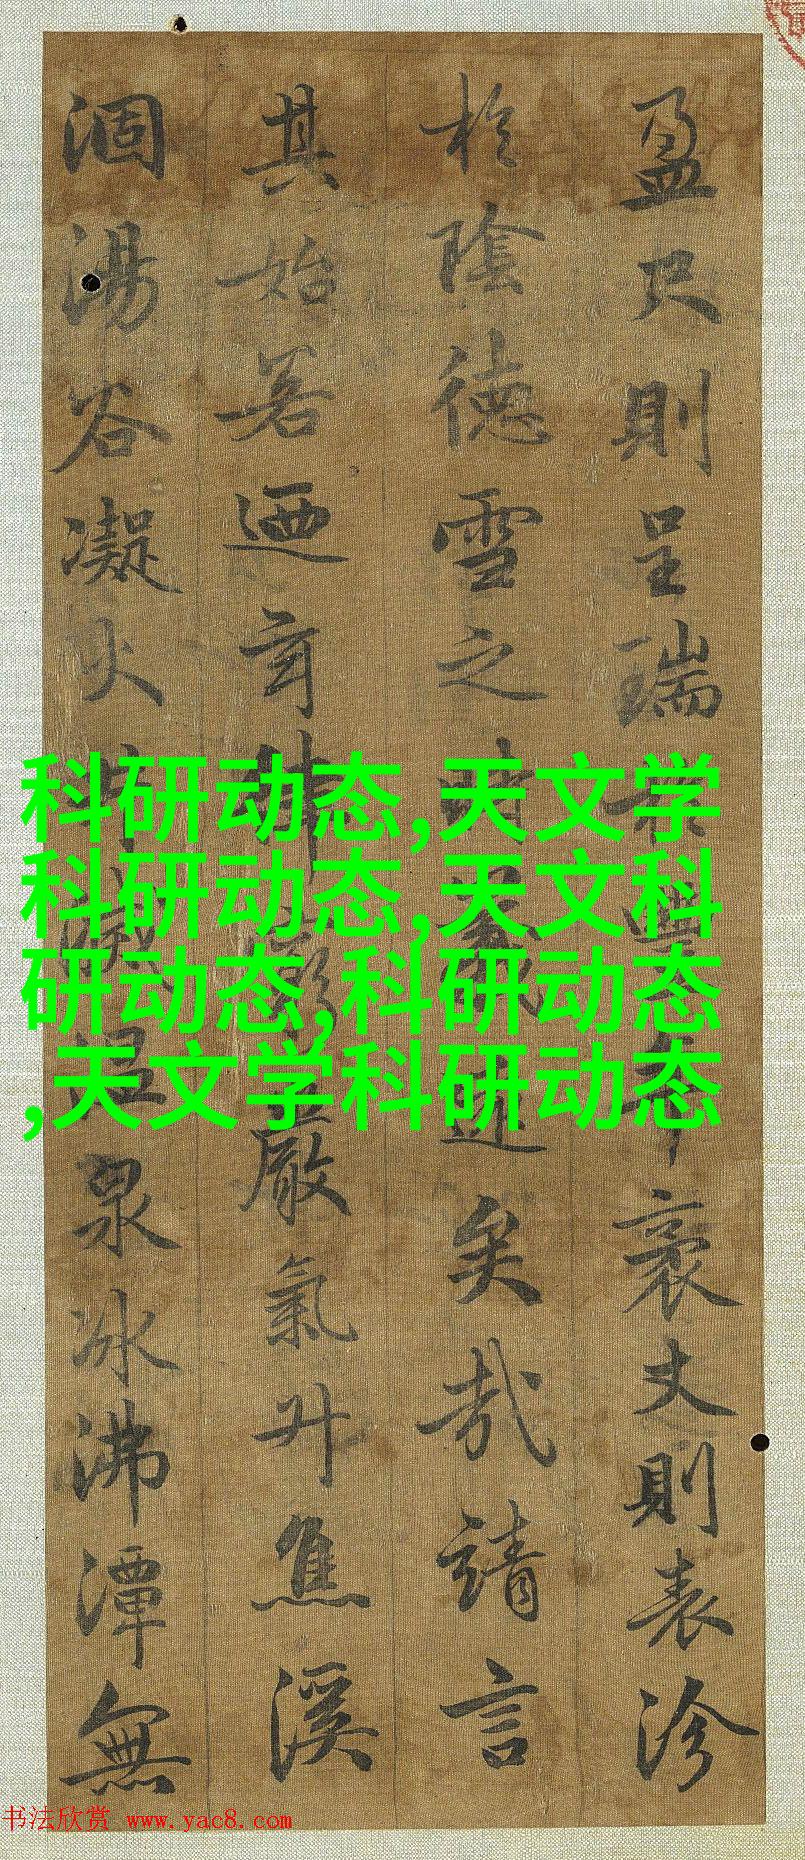 盈尺則呈瑞豐年袤丈則表沴
扵陰德雪之時遠矣哉請言
其始若迺玄律嚴氣升焦溪
涸湯谷凝火溫泉冰沸潭無
科研动态,天文学
科研动态,天文科
研动态,科研动态
,天文学科研动态
书法欣赏 www.yac8.com